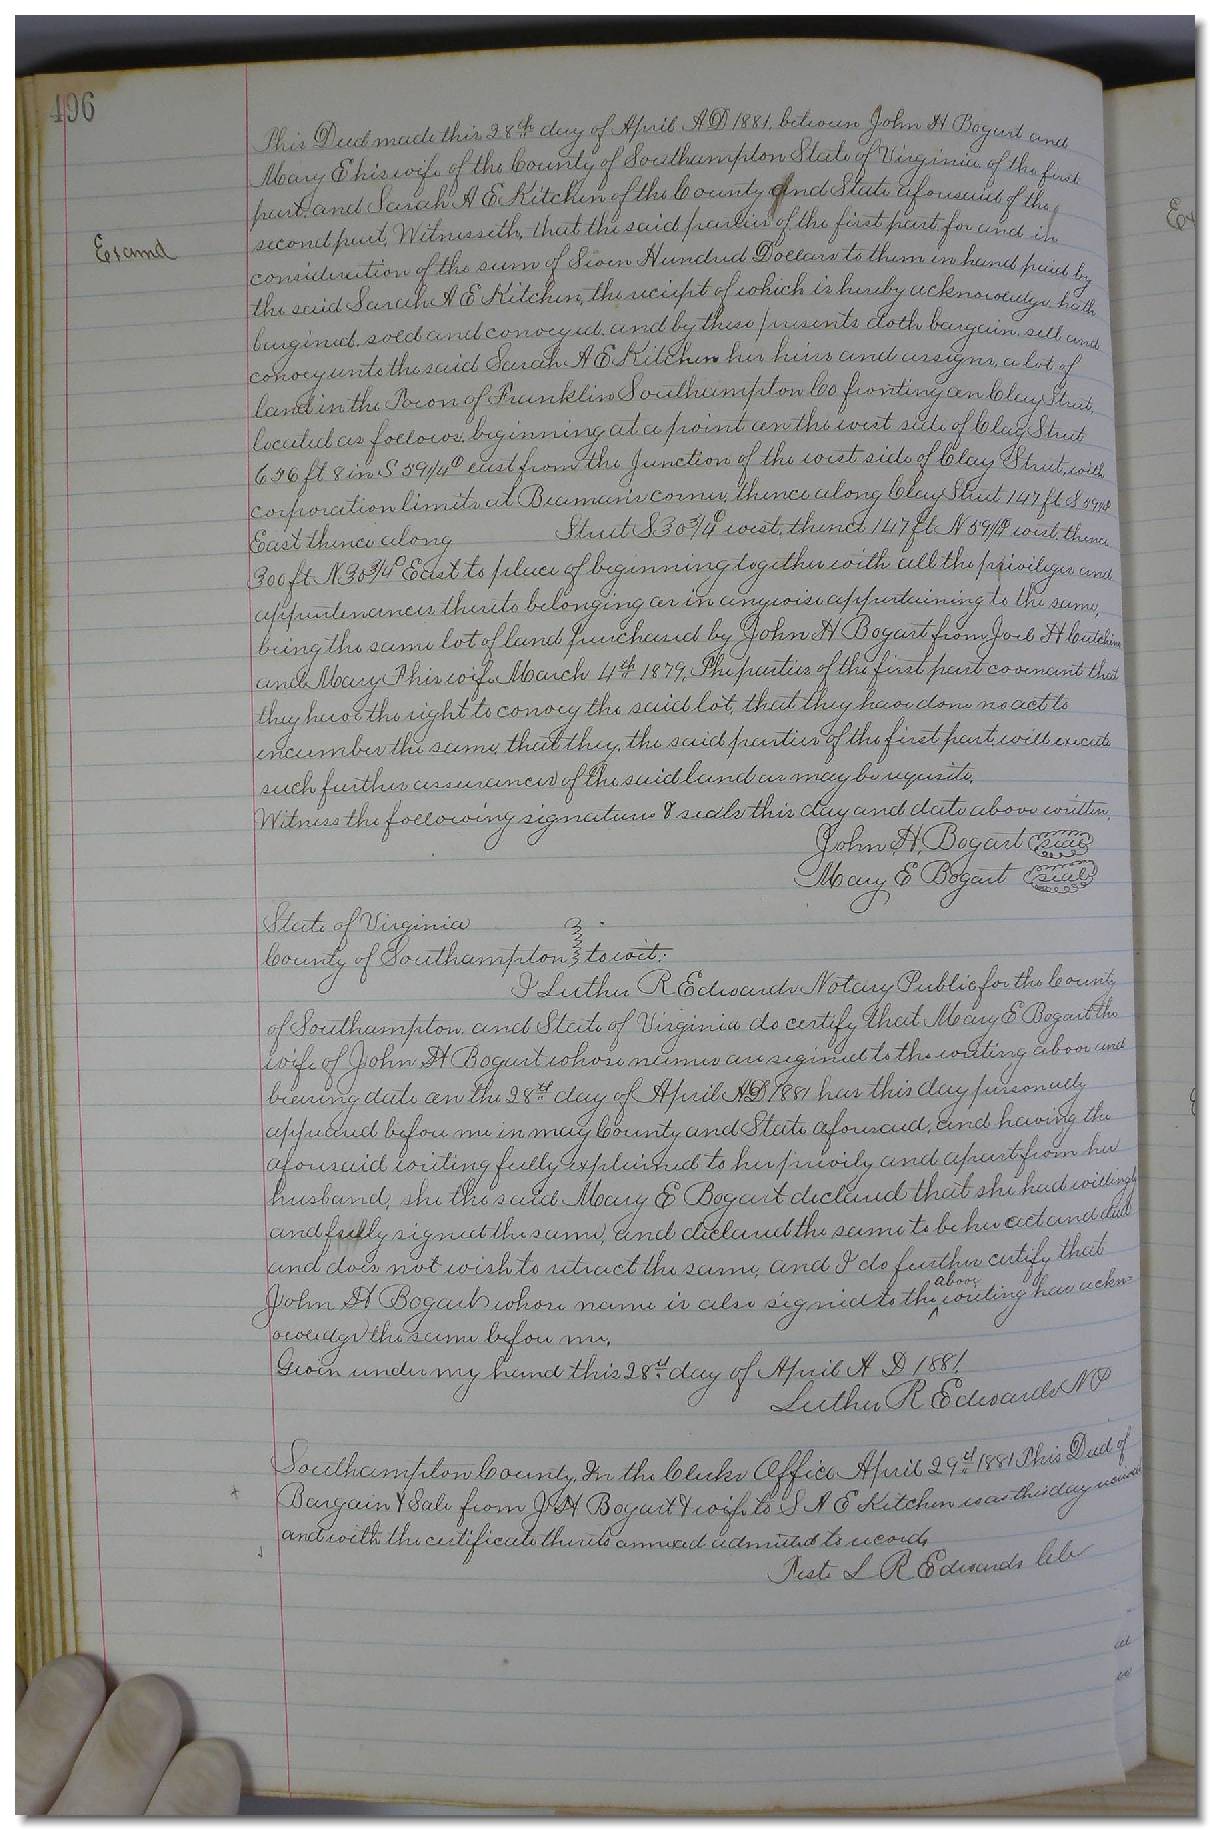 496
This Deed made this 28th day of April AD 1881, between John H Bogart and
Mary E his wife of the County of Southampton State of Virginia of the first
part, and Sarah A E Kitchen of the County and State aforesaid of the
second part, Witnesseth, that the said parties of the first part for and in
Examd
consideration of the sum of Seven Hundred Dollars to them in hand paid by
the said Sarah A E Kitchen, the reciept of which is hereby acknowledge, hath
bargined, sold and conveyed, and by these presents doth bargain, sell and
convey unto the said Sarah A E Kitchen her heirs and assigns, a lot of
land in the Town of Franklin Southampton Co fronting on Clay Street,
located as follows, beginning at a point on the west side of Clay Street
656 ft 8 in S 59 1/4° east from the Junction of the west side of Clay Street, with
corporation limits at Beaman's corner, thence along Clay Street 147 ft S 59 1/4°
East thence along Street S 30 3/4° west, thence 147 ft N 59 1/4° west, thence
300 ft N 30 3/4° East to place of beginning together with all the privileges and
appurtenances thereto belonging or in anywise appurtaining to the same,
being the same lot of land purchased by John H Bogart from Joel H
and Mary his wife March 4th 1879, The parties of the first part covenant that
they have the right to convey the said lot, that they have done no act to
encumber the same, that they, the said parties of the first part, will execute
such further assurances of the said land as may be requisite.
Witness the following signature & seals this day and date above written.
John H. Bogart seal
Mary E Bogart seal
State of Virginia
County of Southampton to wit:
I Luther R Edwards Notary Public for the County
of Southampton and State of Virginia do certify that Mary E Bogart the
wife of John H Bogart whose names are segined to the writing above and
bearing date on the 28th day of April AD 1881 has this day personally
appeared before me in may County and State aforesaid, and having the
aforesaid writing fully explained to her privily and apart from her
husband, she the said Mary E Bogart declared that she had willingly
and fully signed the same, and declared the same to be her act and deed
and does not wish to retract the same, and I do further certify that
John H Bogart whose name is also signed to the above writing has ackn-
owledge the same before me.
Given under my hand this 28th day of April A D 1881
Luther R Edwards NP
Southampton County, In the Clerks Office April 29th 1881 This Deed of
Bargain & Sale from J H Bogart & wife to S A E Kitchen was this day received
and with the certificate thereto annexed admitted to record,
Teste L R Edwards Clk